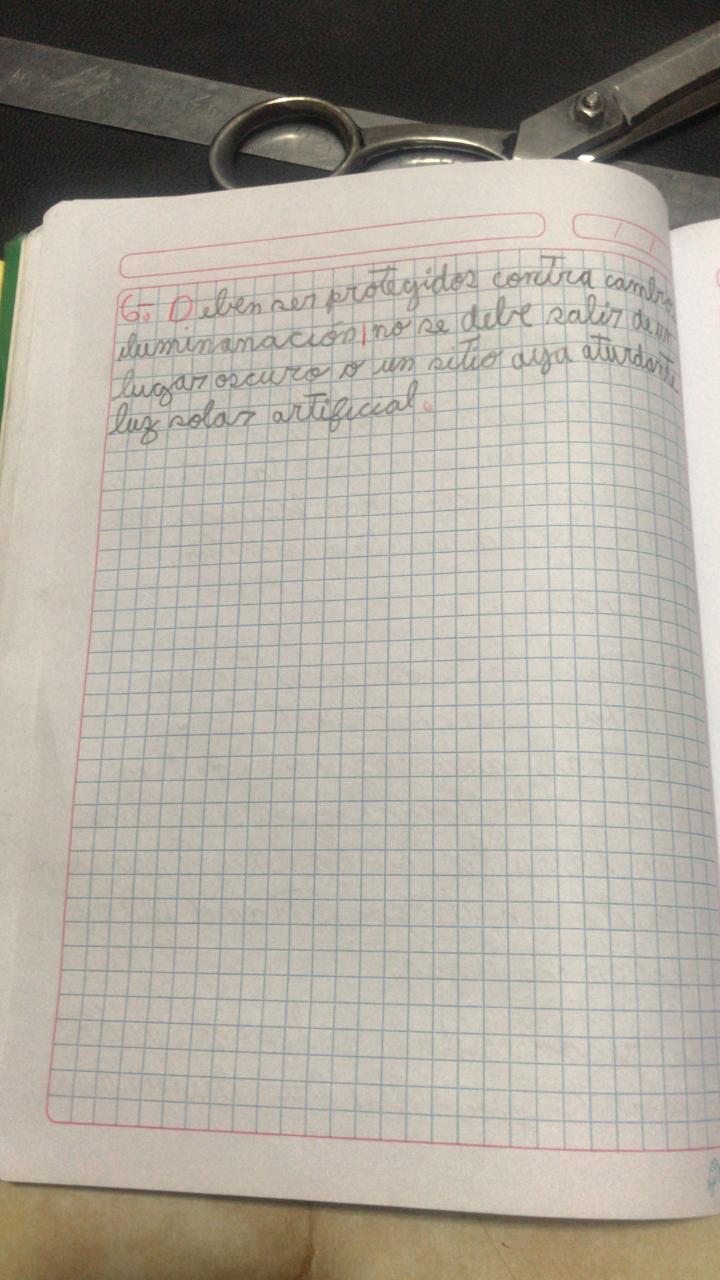 6: Deben ser protegidos contra cambio
iluminanación, no se debe salir de un
lugar oscuro o un sitio aya aturdante
luz solar artificial.